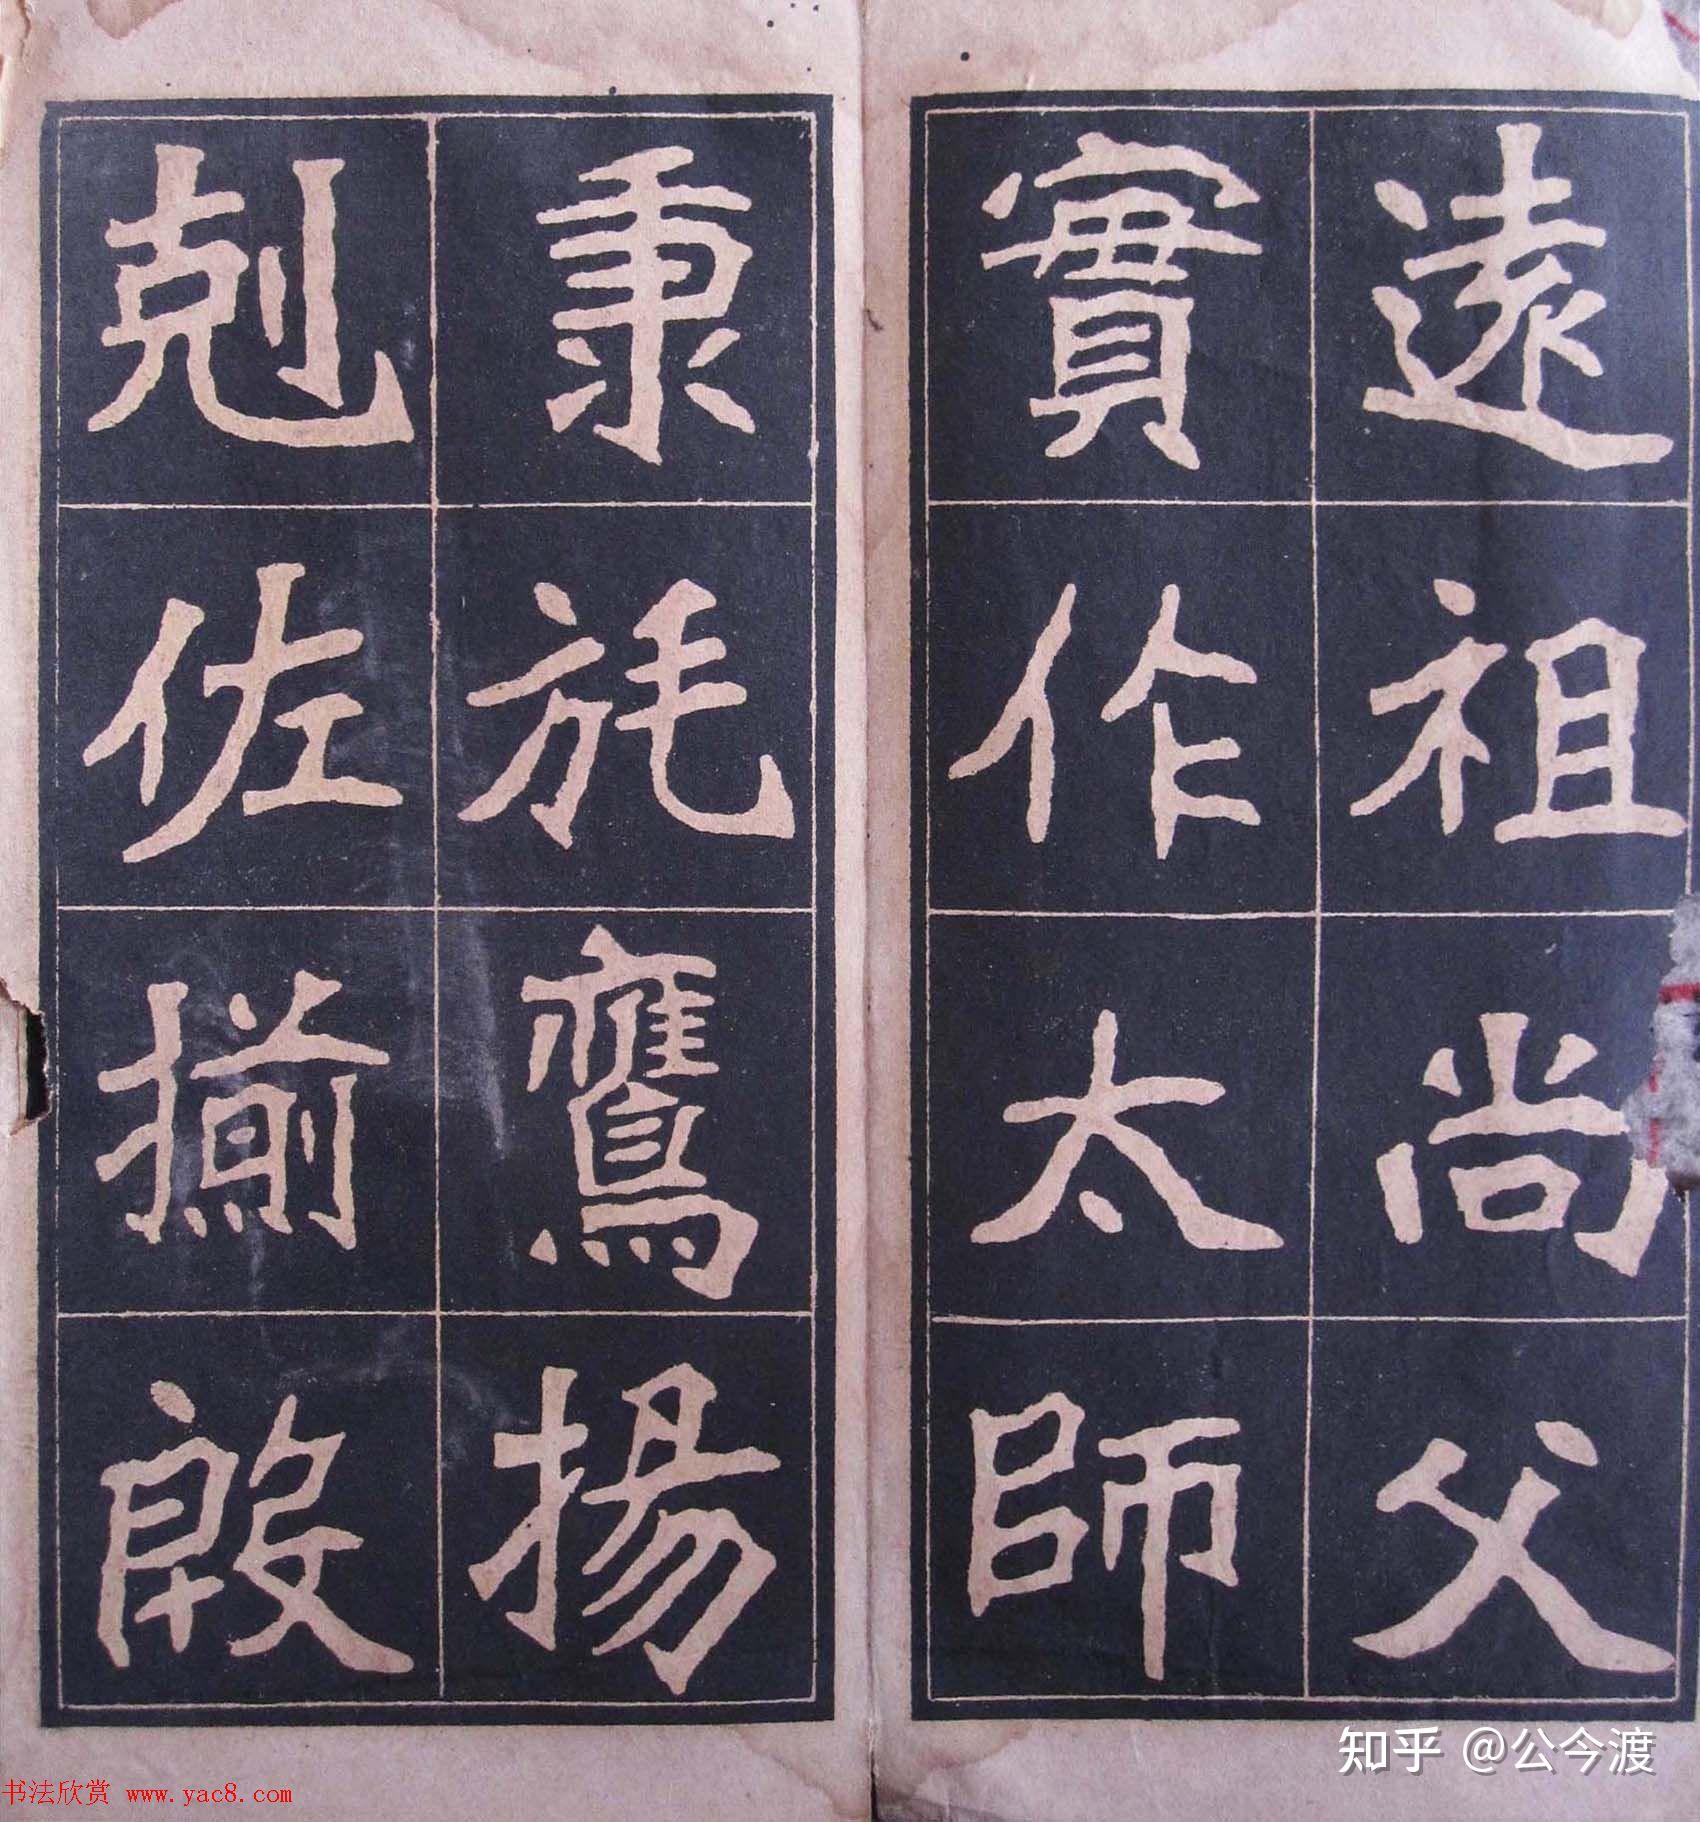 遠祖尚父
實作太師
秉旄鷹揚
剋佐揃殷
知乎 @公今渡
书法欣赏 www.yac8.com